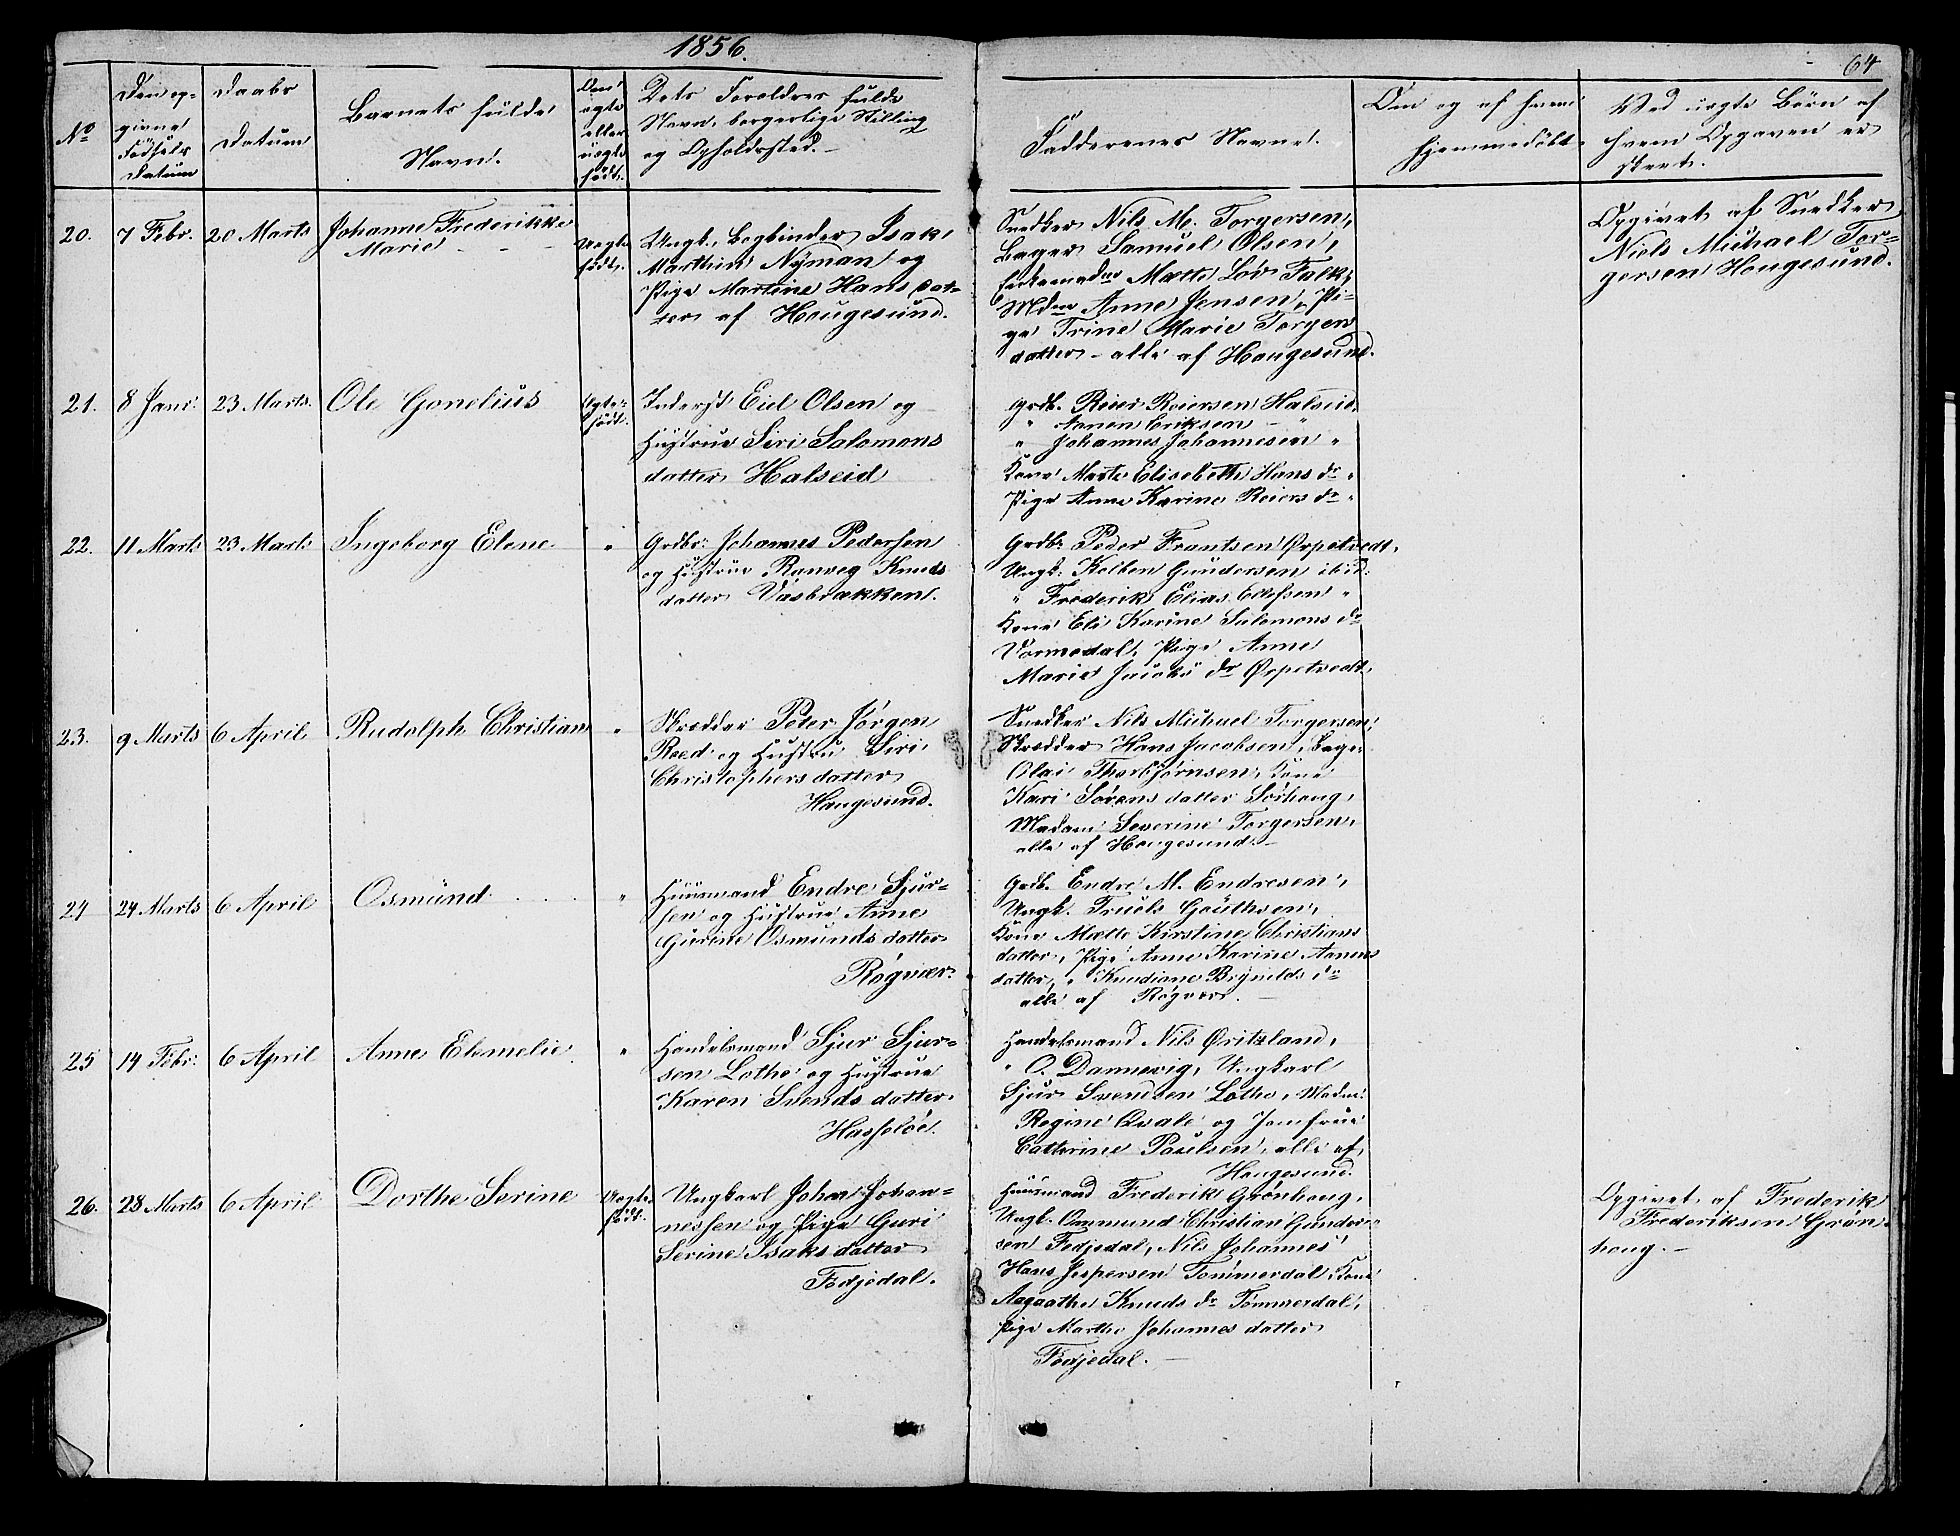 1856.
64
No
Den op-
givne
Fødsels
Datum
Daabs
Datum
Barnets fulde
Navn.
Om
ægte
eller
uægte
født.
Dets Forældres fulde
Navn, borgerlige Stilling
og Opholdssted.
Faddernes Navne.
Om og af hvem
hjemmedøbt.
Ved uægte Børn af
hvem Opgaven er
skeet.
20. 7 Febr. 20 Marts Johanne Frederikke
Marie
Uægte
født.
Ungk. Bogbinder Isak
Marthin Nÿman og
Pige Martine Hans dat-
ter af Hougesund.
Snedker Nils M. Torgersen,
Bager Samuel Olsen,
Mætte Løv. Falk,
Mdm Anne Jensen, Pi-
ge Trine Marie Torger
datter - alle af Hougesund.
Opgivet af Snedker
Niels Michael Tor-
gersen Hougesund.
21. 8 Janr. 23 Marts. Ole Gonelius
Ægte
født.
Inderst Eiel Olsen og
Hustrue Siri Salomons
datter Halseid
Grdb. Reier Reiersen Halseid
" Aanen Eriksen - "
" Johannes Johannesen "
Kone Marte Elisabeth Hans dr "
Pige Anne Karine Reiers dr "
22. 11 Marts 23 Marts Ingeborg Elene "
Grdbr: Johannes Pedersen
og Hustrue Ranveg Knuds
datter Vasbrækken.
Grdbr Peder Frantsen Ørpetvedt,
Ungk: Kolben Gundersen ibid:
" Frederik Elias Ellefsen "
Kone Eli Karine Salomons dr
Vormedal, Pige Anne
Marie Jacobs dr Ørpetvedt.
23. 9 Marts 6 April Rudolph Christian "
Skrædder Peter Jørgen
Roed og Hustru Siri
Christophers datter
Haugesund.
Snedker Nils Michael Torgersen,
Skrædder Hans Jacobsen, Bager
Olai Thorbjørnsen, Kone
Kari Sørens datter Sørhoug,
Madam Severine Torgersen,
alle af Hougesund. -
24 24 Marts 6 April Osmund "
Huusmand Endre Sjur-
sen og Hustrue Anne
Gurine Osmunds datter
Røgvær.
Grdb. Endre M. Endresen,
Ungk. Truels Gouthsen,
Kone Mætte Kirstine Christians
datter, Pige Anne Karine Aanens
datter, " Knudiane Brynilds dr
alle af Røgvær. -
25 14 Febr: 6 April Anne Elemelie "
Handelsmand Sjur Sjur-
sen Lothe og Hustrue
Karen Svends datter
Hasseløe.
Handelsmand Nils Øritzland,
" O. Dannevig, Ungkarl
Sjur Svendsen Lothe, Madm:
Regine Qvale og Jomfrue
Cathrine Paulsen, alle af
Hougesund.
26. 28 Marts 6 April Dorthe Serine
Uægte
født.
Ungkarl Johan Johan-
nessen og Pige Guri
Serine Isaks datter
Fedjedal.
Huusmand Frederik Grønhoug,
Ungk. Ommund Christian Gunder-
sen Fedjedal, Nils Johannes
Hans Jespersen Tommerdal, Kone
Aagaathe Knuds dr Tømmerdal,
Pige Marthe Johannes datter
Fedjedal. -
Opgivet af Frederik
Frederiksen Grøn-
houg. -